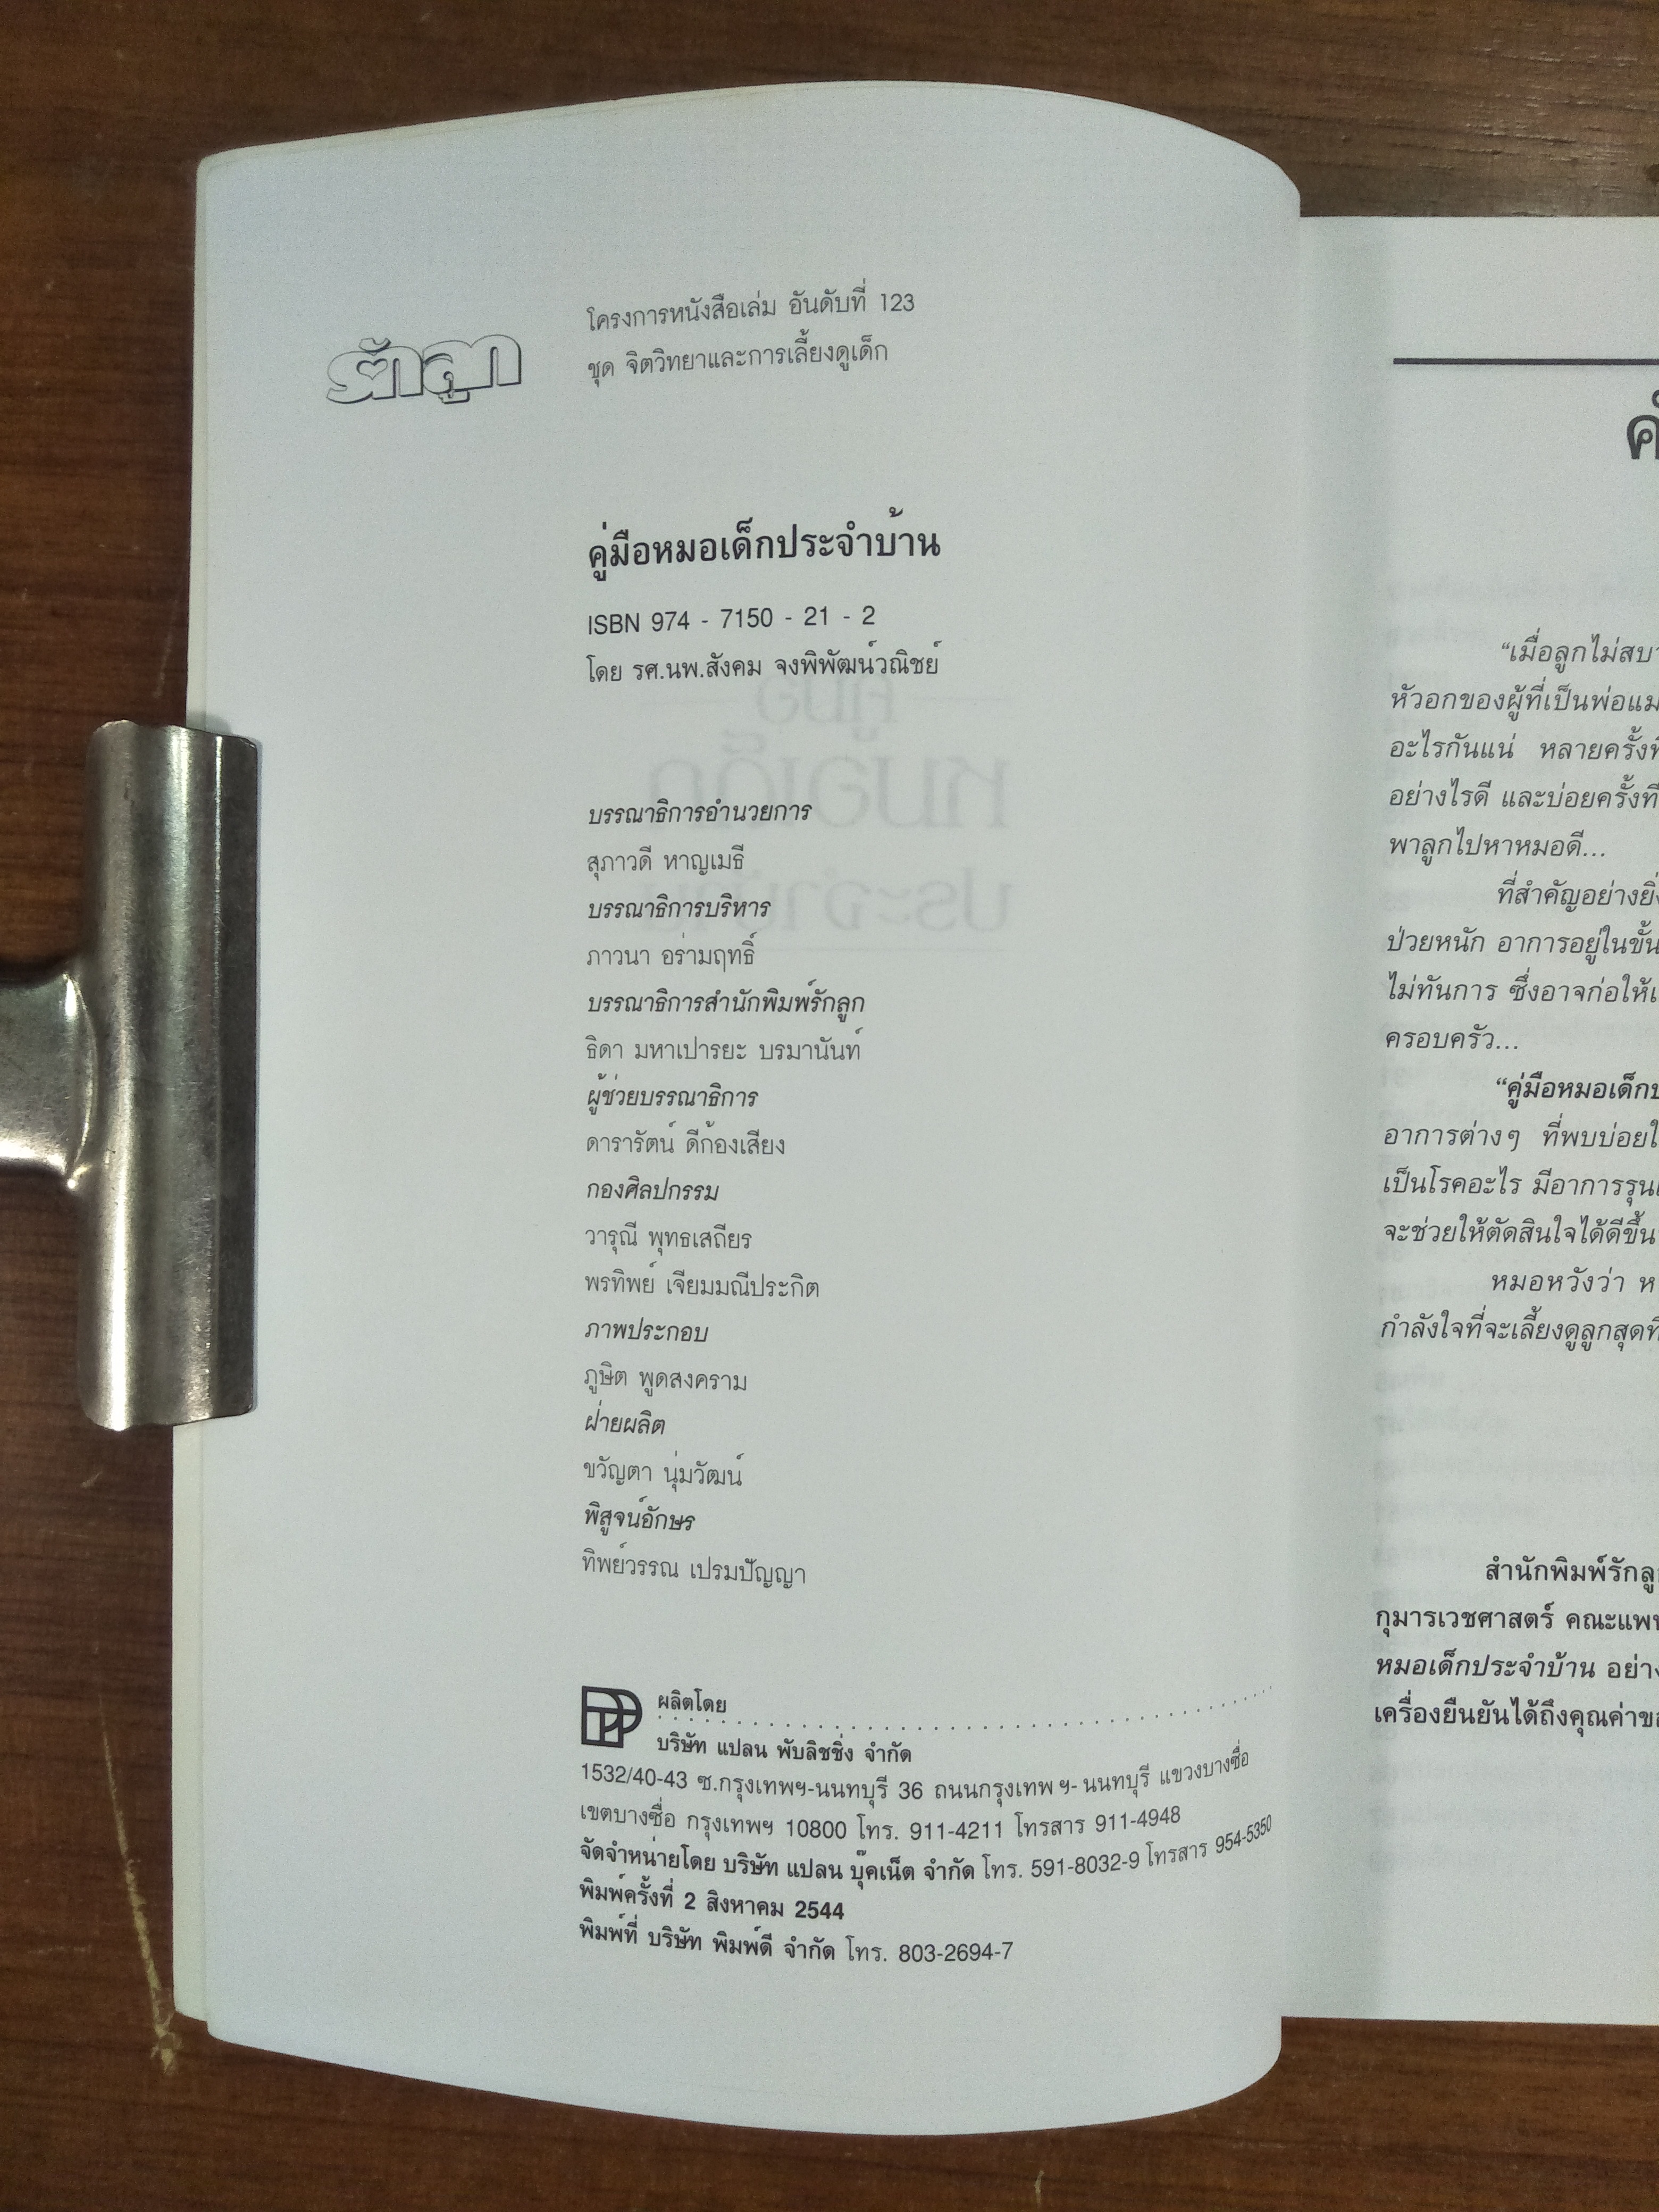 รักลูก
โครงการหนังสือเล่ม อันดับที่ 123
ชุด จิตวิทยาและการเลี้ยงดูเด็ก
คู่มือหมอเด็กประจำบ้าน
ISBN 974 - 7150 - 21 - 2
โดย รศ.นพ.สังคม จงพิพัฒน์วณิชย์
บรรณาธิการอำนวยการ
สุภาวดี หาญเมธี
บรรณาธิการบริหาร
ภาวนา อร่ามฤทธิ์
บรรณาธิการสำนักพิมพ์รักลูก
ธิดา มหาเปารยะ บรมานันท์
ผู้ช่วยบรรณาธิการ
ดารารัตน์ ดีก้องเสียง
กองศิลปกรรม
วารุณี พุทธเสถียร
พรทิพย์ เจียมมณีประกิต
ภาพประกอบ
ภูษิต พูดสงคราม
ฝ่ายผลิต
ขวัญตา นุ่มวัฒน์
พิสูจน์อักษร
ทิพย์วรรณ เปรมปัญญา
ผลิตโดย
บริษัท แปลน พับลิชชิ่ง จำกัด
1532/40-43 ซ.กรุงเทพฯ-นนทบุรี 36 ถนนกรุงเทพ ฯ- นนทบุรี แขวงบางซื่อ
เขตบางซื่อ กรุงเทพฯ 10800 โทร. 911-4211 โทรสาร 911-4948
จัดจำหน่ายโดย บริษัท แปลน บุ๊คเน็ต จำกัด โทร. 591-8032-9 โทรสาร 954-5350
พิมพ์ครั้งที่ 2 สิงหาคม 2544
พิมพ์ที่ บริษัท พิมพ์ดี จำกัด โทร. 803-2694-7
“เมื่อลูกไม่สบา
หัวอกของผู้ที่เป็นพ่อแม่
อะไรกันแน่ หลายครั้งที่
อย่างไรดี และบ่อยครั้งที่
พาลูกไปหาหมอดี...
ที่สำคัญอย่างยิ่ง
ป่วยหนัก อาการอยู่ในขั้น
ไม่ทันการ ซึ่งอาจก่อให้เ
ครอบครัว...
“คู่มือหมอเด็กป
อาการต่างๆ ที่พบบ่อยใ
เป็นโรคอะไร มีอาการรุนแ
จะช่วยให้ตัดสินใจได้ดีขึ้น
หมอหวังว่า ห
กำลังใจที่จะเลี้ยงดูลูกสุดที่
สำนักพิมพ์รักลู
กุมารเวชศาสตร์ คณะแพท
หมอเด็กประจำบ้าน อย่าง
เครื่องยืนยันได้ถึงคุณค่าขอ